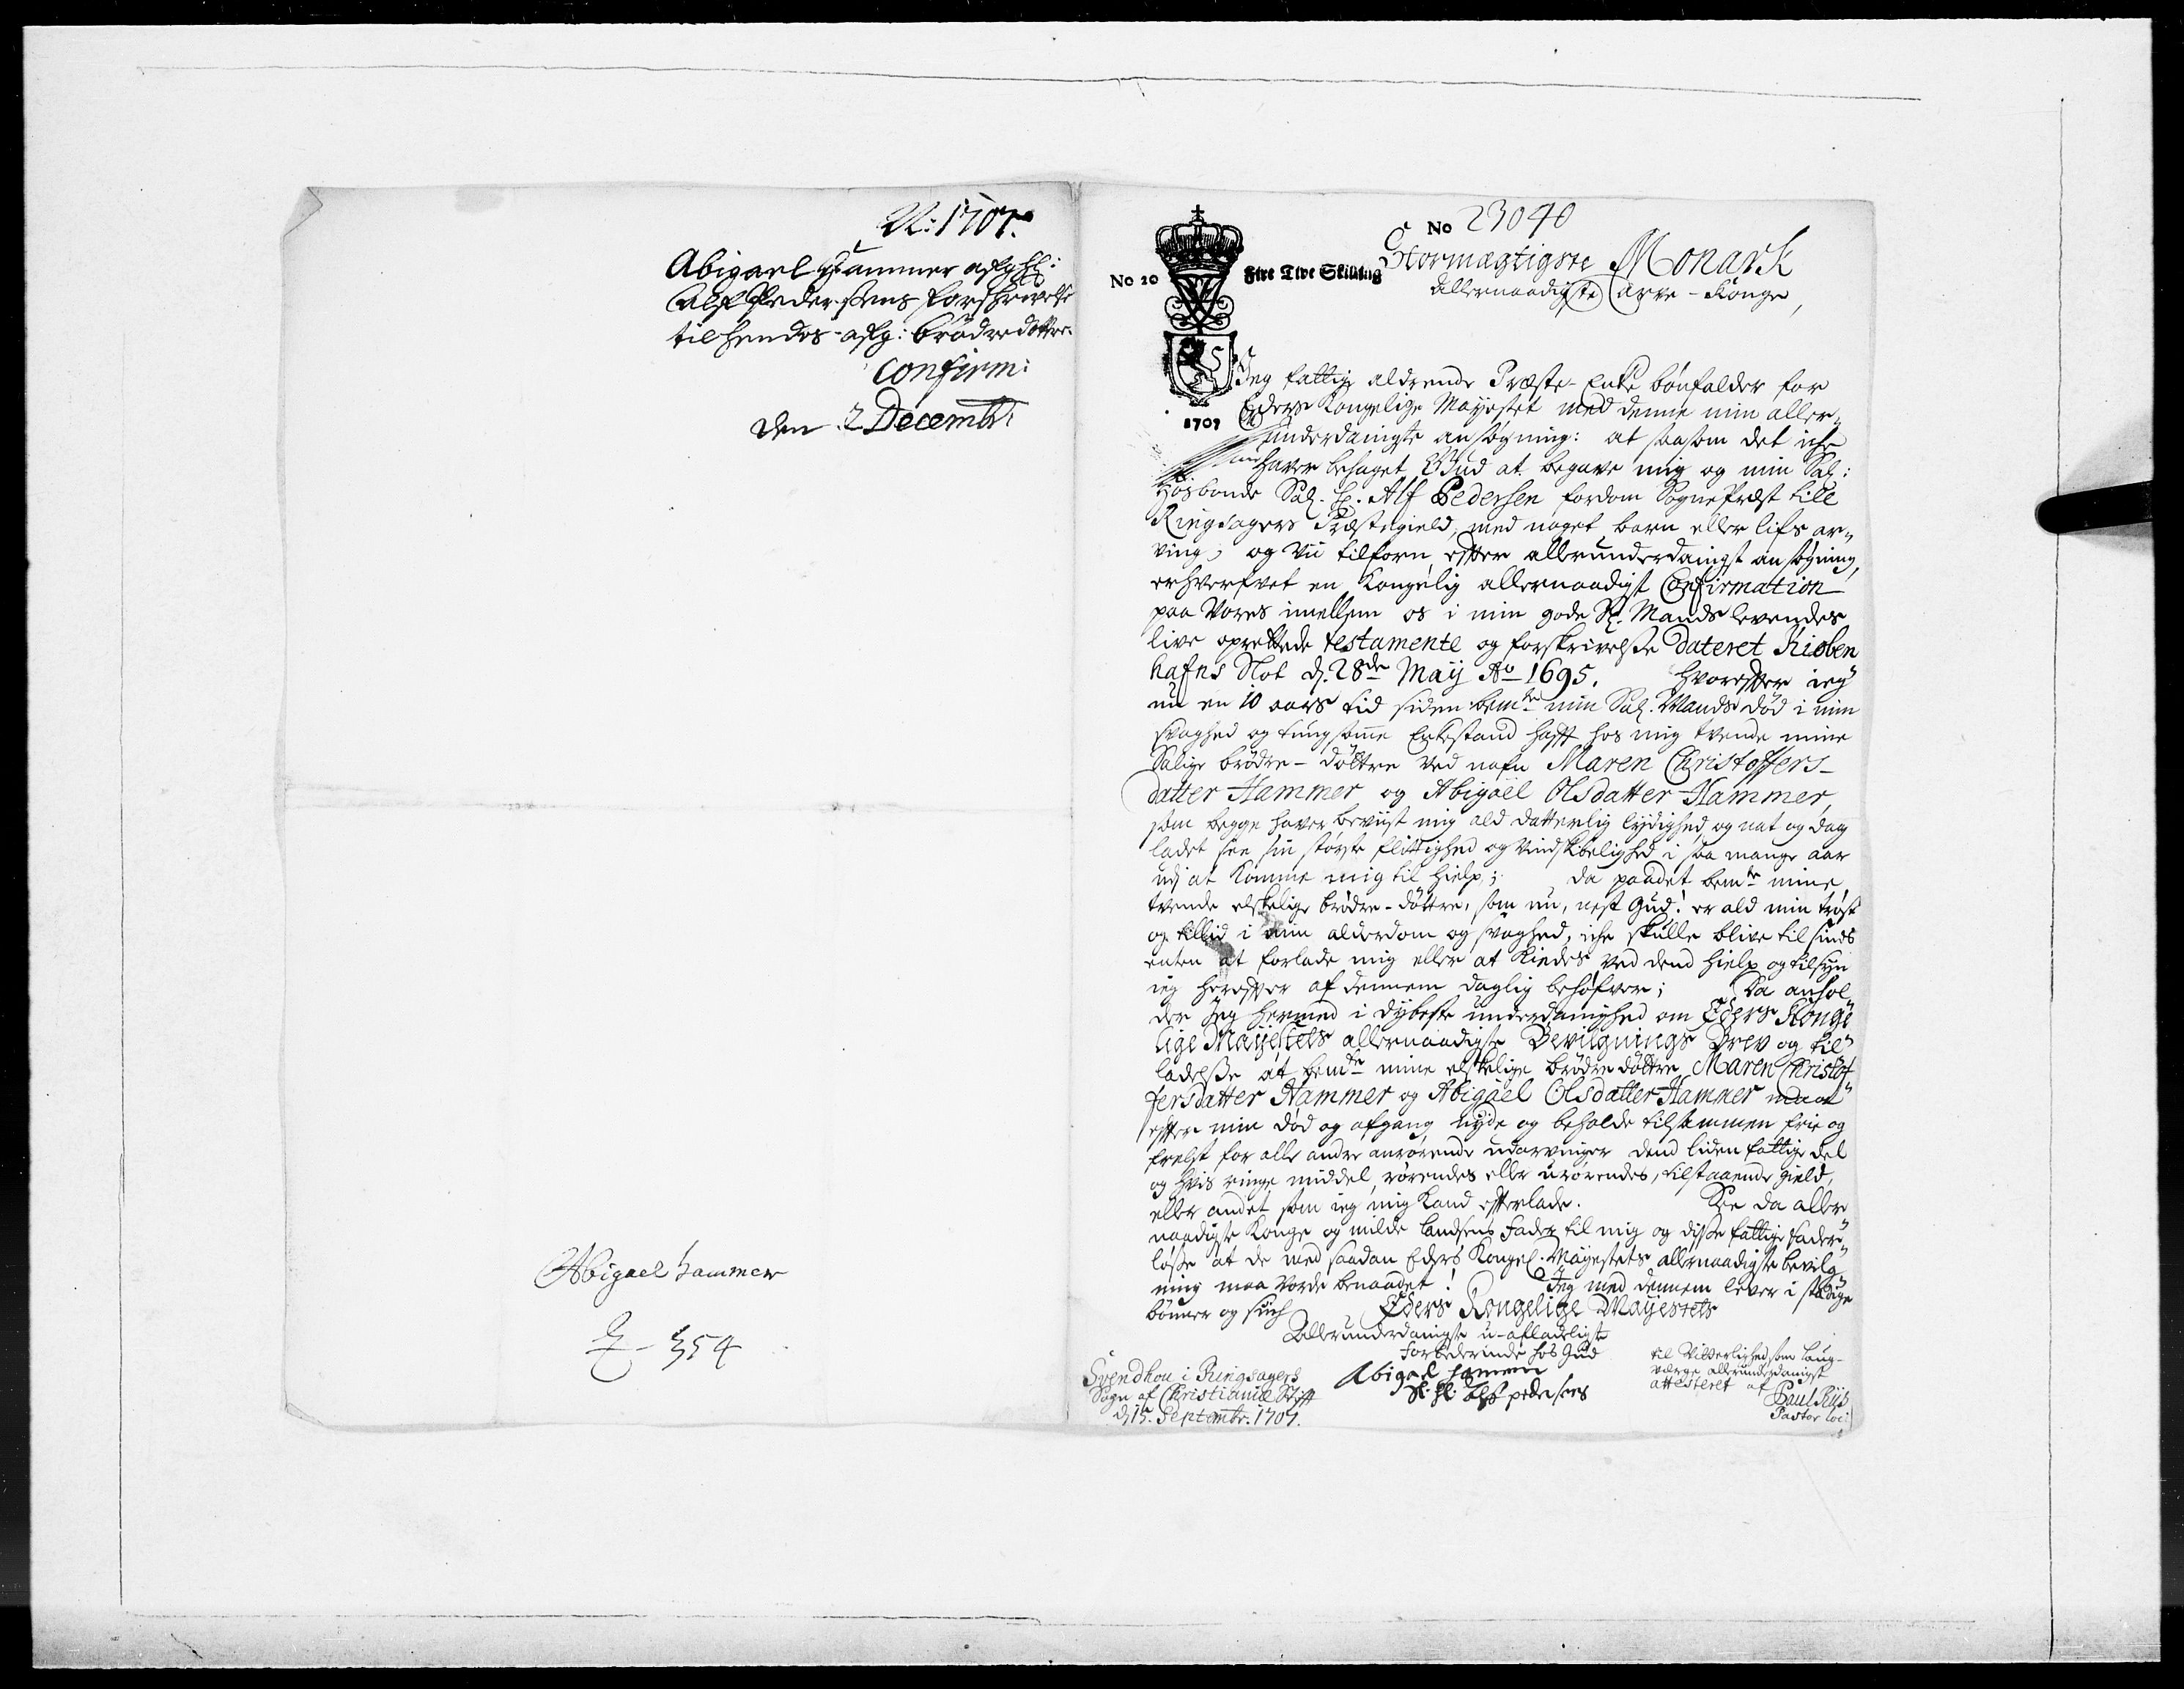 N: 1707.
Abigael Hammer afg: Hl:
Alf Pedersens forskrivelse
til hendes afg: brødre døttre
Confirm:
den 2 Decembr:
Abigael Hammer
354
No 23040
No 20
Fire Tive Skilling
1707
Stormægtigste Monark
Allernaadigste Arve-Konge,
Jeg fattige aldrende Præste-Enke bønfalder for
Eders Kongelige Mayestet med denne min aller-
underdanigste ansøgning: at saasom det iche
haver behaget Gud at begave mig og min Sal:
Hosbonde Sal. Hr. Alf Pedersen fordom SognePræst till
Ringsagers Præstegield, med noget barn eller lifs ar-
ving; og Vii tilforn efter allerunderdanigst ansøgning,
erhvervet en Kongelig allernaadigst Confirmation
paa Vores imellem os i min gode Sl. Mands levendes
live oprettede testamente og forskrivelse dateret Kioben
hafns Slot d. 28de Maij Ao 1695. Hvorefter ieg
nu en 10 aars tid siden bemte min Sal. Mands død i min
svaghed og tungsomme Enkestand hafft hos mig tvende mine
Salige brødre-døttre ved nafn Maren Christoffers-
datter Hammer og Abigael Olsdatter Hammer,
som begge haver beviist mig ald datterlig lydighed og nat og dag
ladet see sin største flittighed og Vindskibelighed i saa mange aar
udj at komme mig til hielp; da paadet bemte mine
tvende elskelige brødre-døttre, som nu, nest Gud! er ald min trøst
og tillid i min alderdom og svaghed, iche skulle blive tilsinds
enten at forlade mig eller at kiedes ved dend hielp og tilsyn
ieg herefter af dennem daglig behøfver; Da anhol
der Jeg hermed i dybeste underdanighed om Eders Konge
lige Mayestets allernaadigste Bevilgnings Brev og til
ladelsse at bemte mine elskelige brødre døttre Maren Christof
fersdatter Hammer og Abigael Olsdatter Hammer maa
efter min død og afgang nyde og beholde tilsammen frie og
frelst for alle andre anrørende udarvinger dend liden fattige del
og hvis ringe middel, rørendes eller urørendes, tilstaaende gield,
eller andet som ieg mig kand efterlade. See da aller
naadigste Konge og milde landsens Fader til mig og disse fattige fader-
løsse at de med saadan Eders Kongel. Mayestets allernaadigste bevilg
ning maa vorde benaadet! Jeg med dennem lever i stedsige
bønner og such Eders Kongelige Mayestets
Allerunderdanigste u-afladeligste
Forbederinde hos Gud
Abigael Hamer
Sl. Hl. Alf pedersens
Svendhou i Ringsagers
Sogn af Christianiæ Stift
d 15. Septembr. 1707.
til Vitterlighed som laug-
verge allerunderdanigst
attesteret af
Paul Riis
Pastor loci